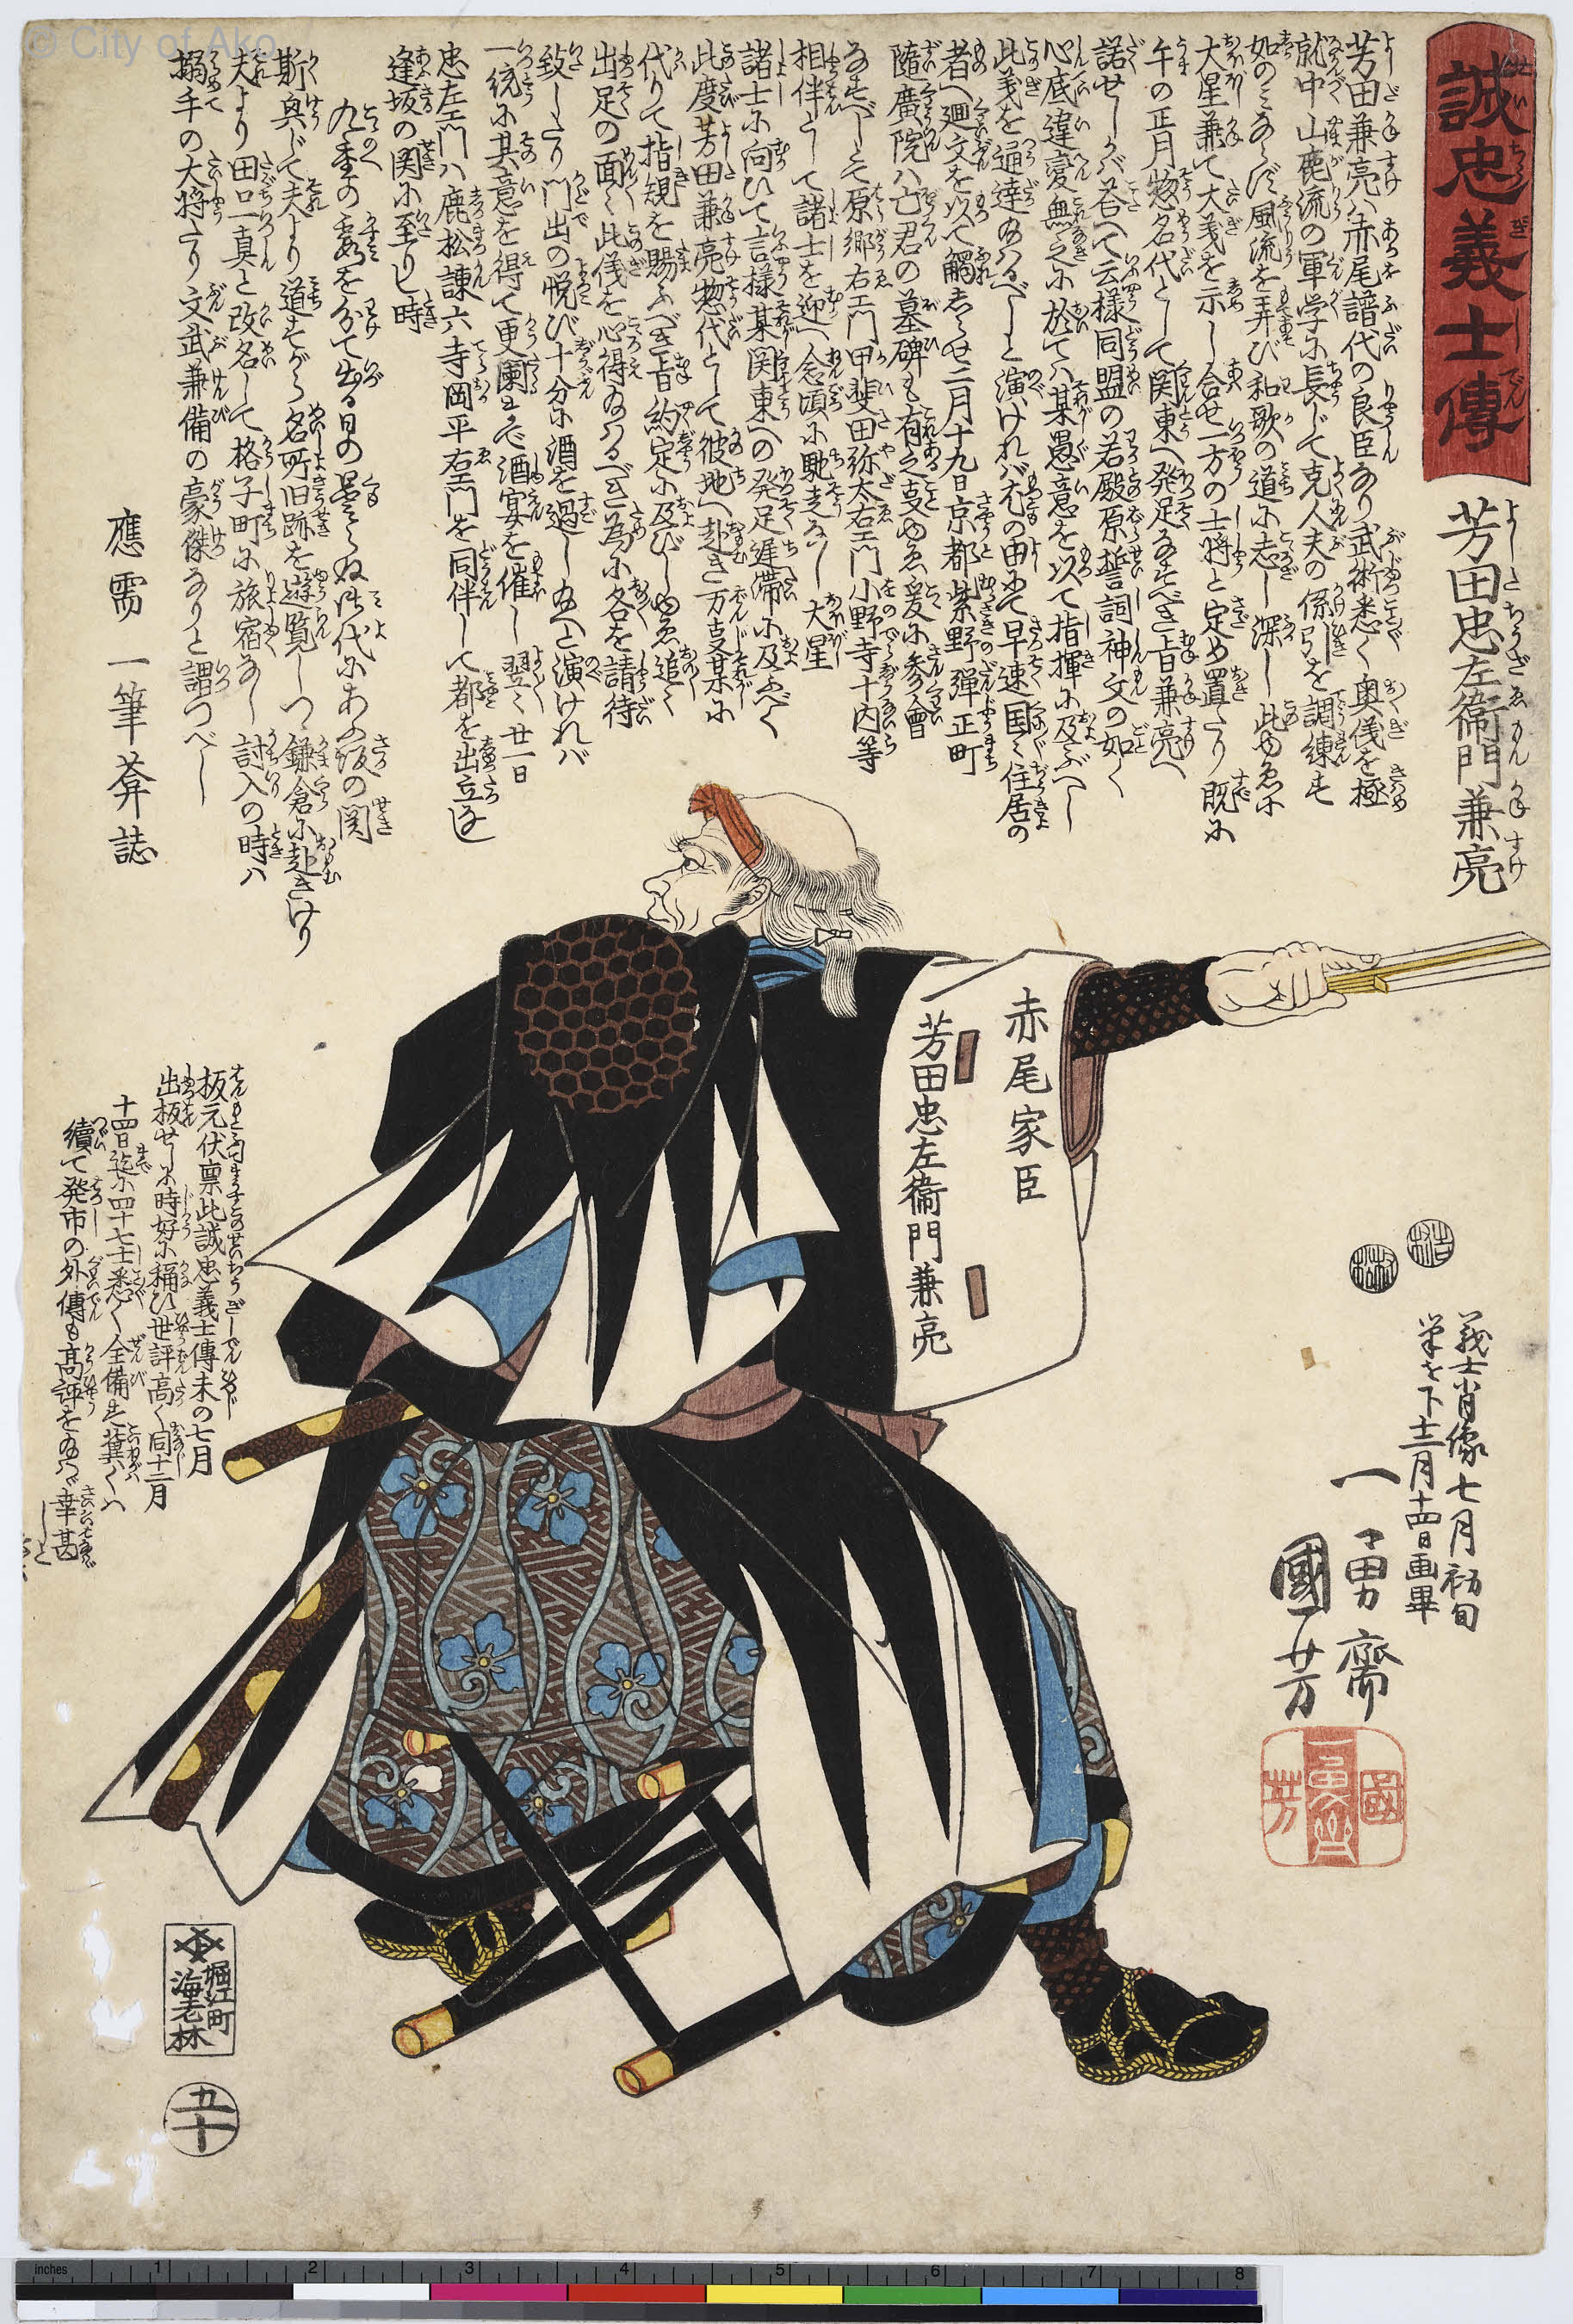 © City of Ako
誠忠義士傳
芳田忠左衛門兼亮
芳田兼亮ハ赤尾譜代の良臣なり武術悉く奥儀を極
就中山鹿流の軍学に長じて克人夫の係引を調練す
如のみならず風流を弄び和歌の道に志し深し此ゆゑに
大星兼て大義を示し合せ一方の士将と定め置たり既に
午の正月惣名代として関東へ発足なすべき旨兼亮へ
諾せしかバ答へて云様同盟の若殿原誓詞神文の如く
心底違変無之に於てハ某愚意を以て指揮に及ぶべし
此義を通達なるべしと演けれバ尤の由にて早速国々住居の
者へ廻文を以て觸しらせ二月十九日京都紫野弾正町
隨廣院ハ亡君の墓碑も有之事ゆゑ爰に参會
なすべしとて原郷右エ門甲斐田弥太右エ門小野寺十内等
相伴うて諸士を迎へ念頃に馳走なし大星
諸士に向ひて言様某関東への発足遅滞に及ぶべく
此度芳田兼亮惣代として彼地へ赴き万事某に
代りて指規を賜ふべき旨約定に及びしゆゑ追々
出足の面々此儀を心得なるべき為に各を請待
致したり門出の悦び十分に酒を過し給へと演けれバ
一統に其意を得て更闌まで酒宴を催し翌く廿一日
忠左エ門ハ鹿松諌六寺岡平右エ門を同伴して都を出立し
逢坂の関に至りし時
九重の霞を分て出る日の曇らぬ御代にあふ坂の関
斯興じて夫より道すがら名所旧跡を遊覧しつゝ鎌倉に赴きけり
夫より田口一真と改名して格子町に旅宿なし討入の時ハ
搦手の大将たり文武兼備の豪傑なりと謂つべし
應需 一筆菴誌
赤尾家臣
一芳田忠左衛門兼亮
板元伏禀此誠忠義士傳未の七月
出板せしに時好に稱ひ世評高く同十二月
十四日迄に四十七士悉く全備す冀くハ
續て発市の外傳も高評を給ハヾ幸甚
吉村
村松
義士肖像七月初旬
筆を下十二月十四日画畢
一勇齋
國芳
一勇齋
國芳
堀江町
海老林
五十
inches 1 2 3 4 5 6 7 8